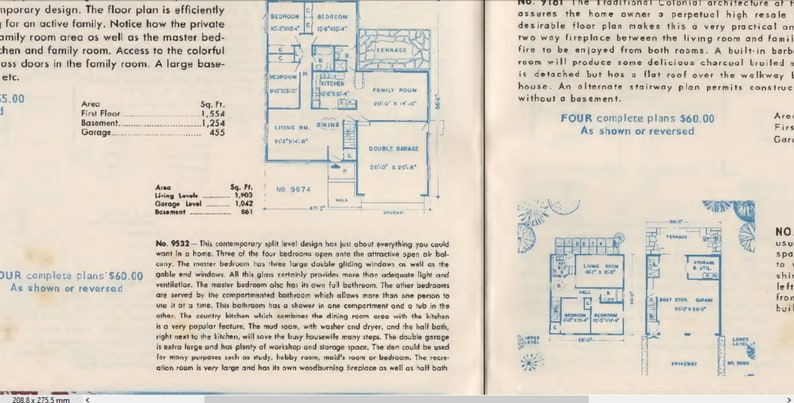 mporary design. The floor plan is efficiently
for an active family. Notice how the private
amily room area as well as the master bed-
chen and family room. Access to the colorful
ass doors in the family room. A large base-
etc.
5.00
Area Sq. Ft.
First Floor 1,554
Basement 1,254
Garage 455
BEDROOM BEDROOM
TERRACE
KITCHEN
FAMILY ROOM
20'-0" X 14'-0"
BEDROOM
DINING
LIVING RM.
DOUBLE GARAGE
20'-0" X 20'-8"
NO. 9674
Area Sq. Ft.
Living Levels 1,903
Garage Level 1,042
Basement 861
No. 9532 — This contemporary split level design has just about everything you could
want in a home. Three of the four bedrooms open onto the attractive open air bal-
cony. The master bedroom has three large double gliding windows as well as the
gable end windows. All this glass certainly provides more than adequate light and
ventilation. The master bedroom also has its own full bathroom. The other bedrooms
are served by the compartmented bathroom which allows more than one person to
use it at a time. This bathroom has a shower in one compartment and a tub in the
other. The country kitchen which combines the dining room area with the kitchen
is a very popular feature. The mud room, with washer and dryer, and the half bath,
right next to the kitchen, will save the busy housewife many steps. The double garage
is extra large and has plenty of workshop and storage space. The den could be used
for many purposes such as study, hobby room, maid's room or bedroom. The recre-
ation room is very large and has its own woodburning fireplace as well as half bath
OUR complete plans $60.00
As shown or reversed
No. 9181 The Traditional Colonial architecture of
assures the home owner a perpetual high resale
desirable floor plan makes this a very practical an
two way fireplace between the living room and famil
fire to be enjoyed from both rooms. A built-in barb
room will produce some delicious charcoal broiled s
is detached but has a flat roof over the walkway b
house. An alternate stairway plan permits construc
without a basement.
FOUR complete plans $60.00
As shown or reversed
Area
Firs
Gara
TERRACE
LIVING ROOM
HALL
BEDROOM BEDROOM
UPPER
LEVEL
STORAGE
& UTIL.
BOAT STOR. GARAGE
DRIVEWAY
LOWER
LEVEL
NO.
usu
spa
to
shi
left
fron
buil
208.8 x 275.5 mm